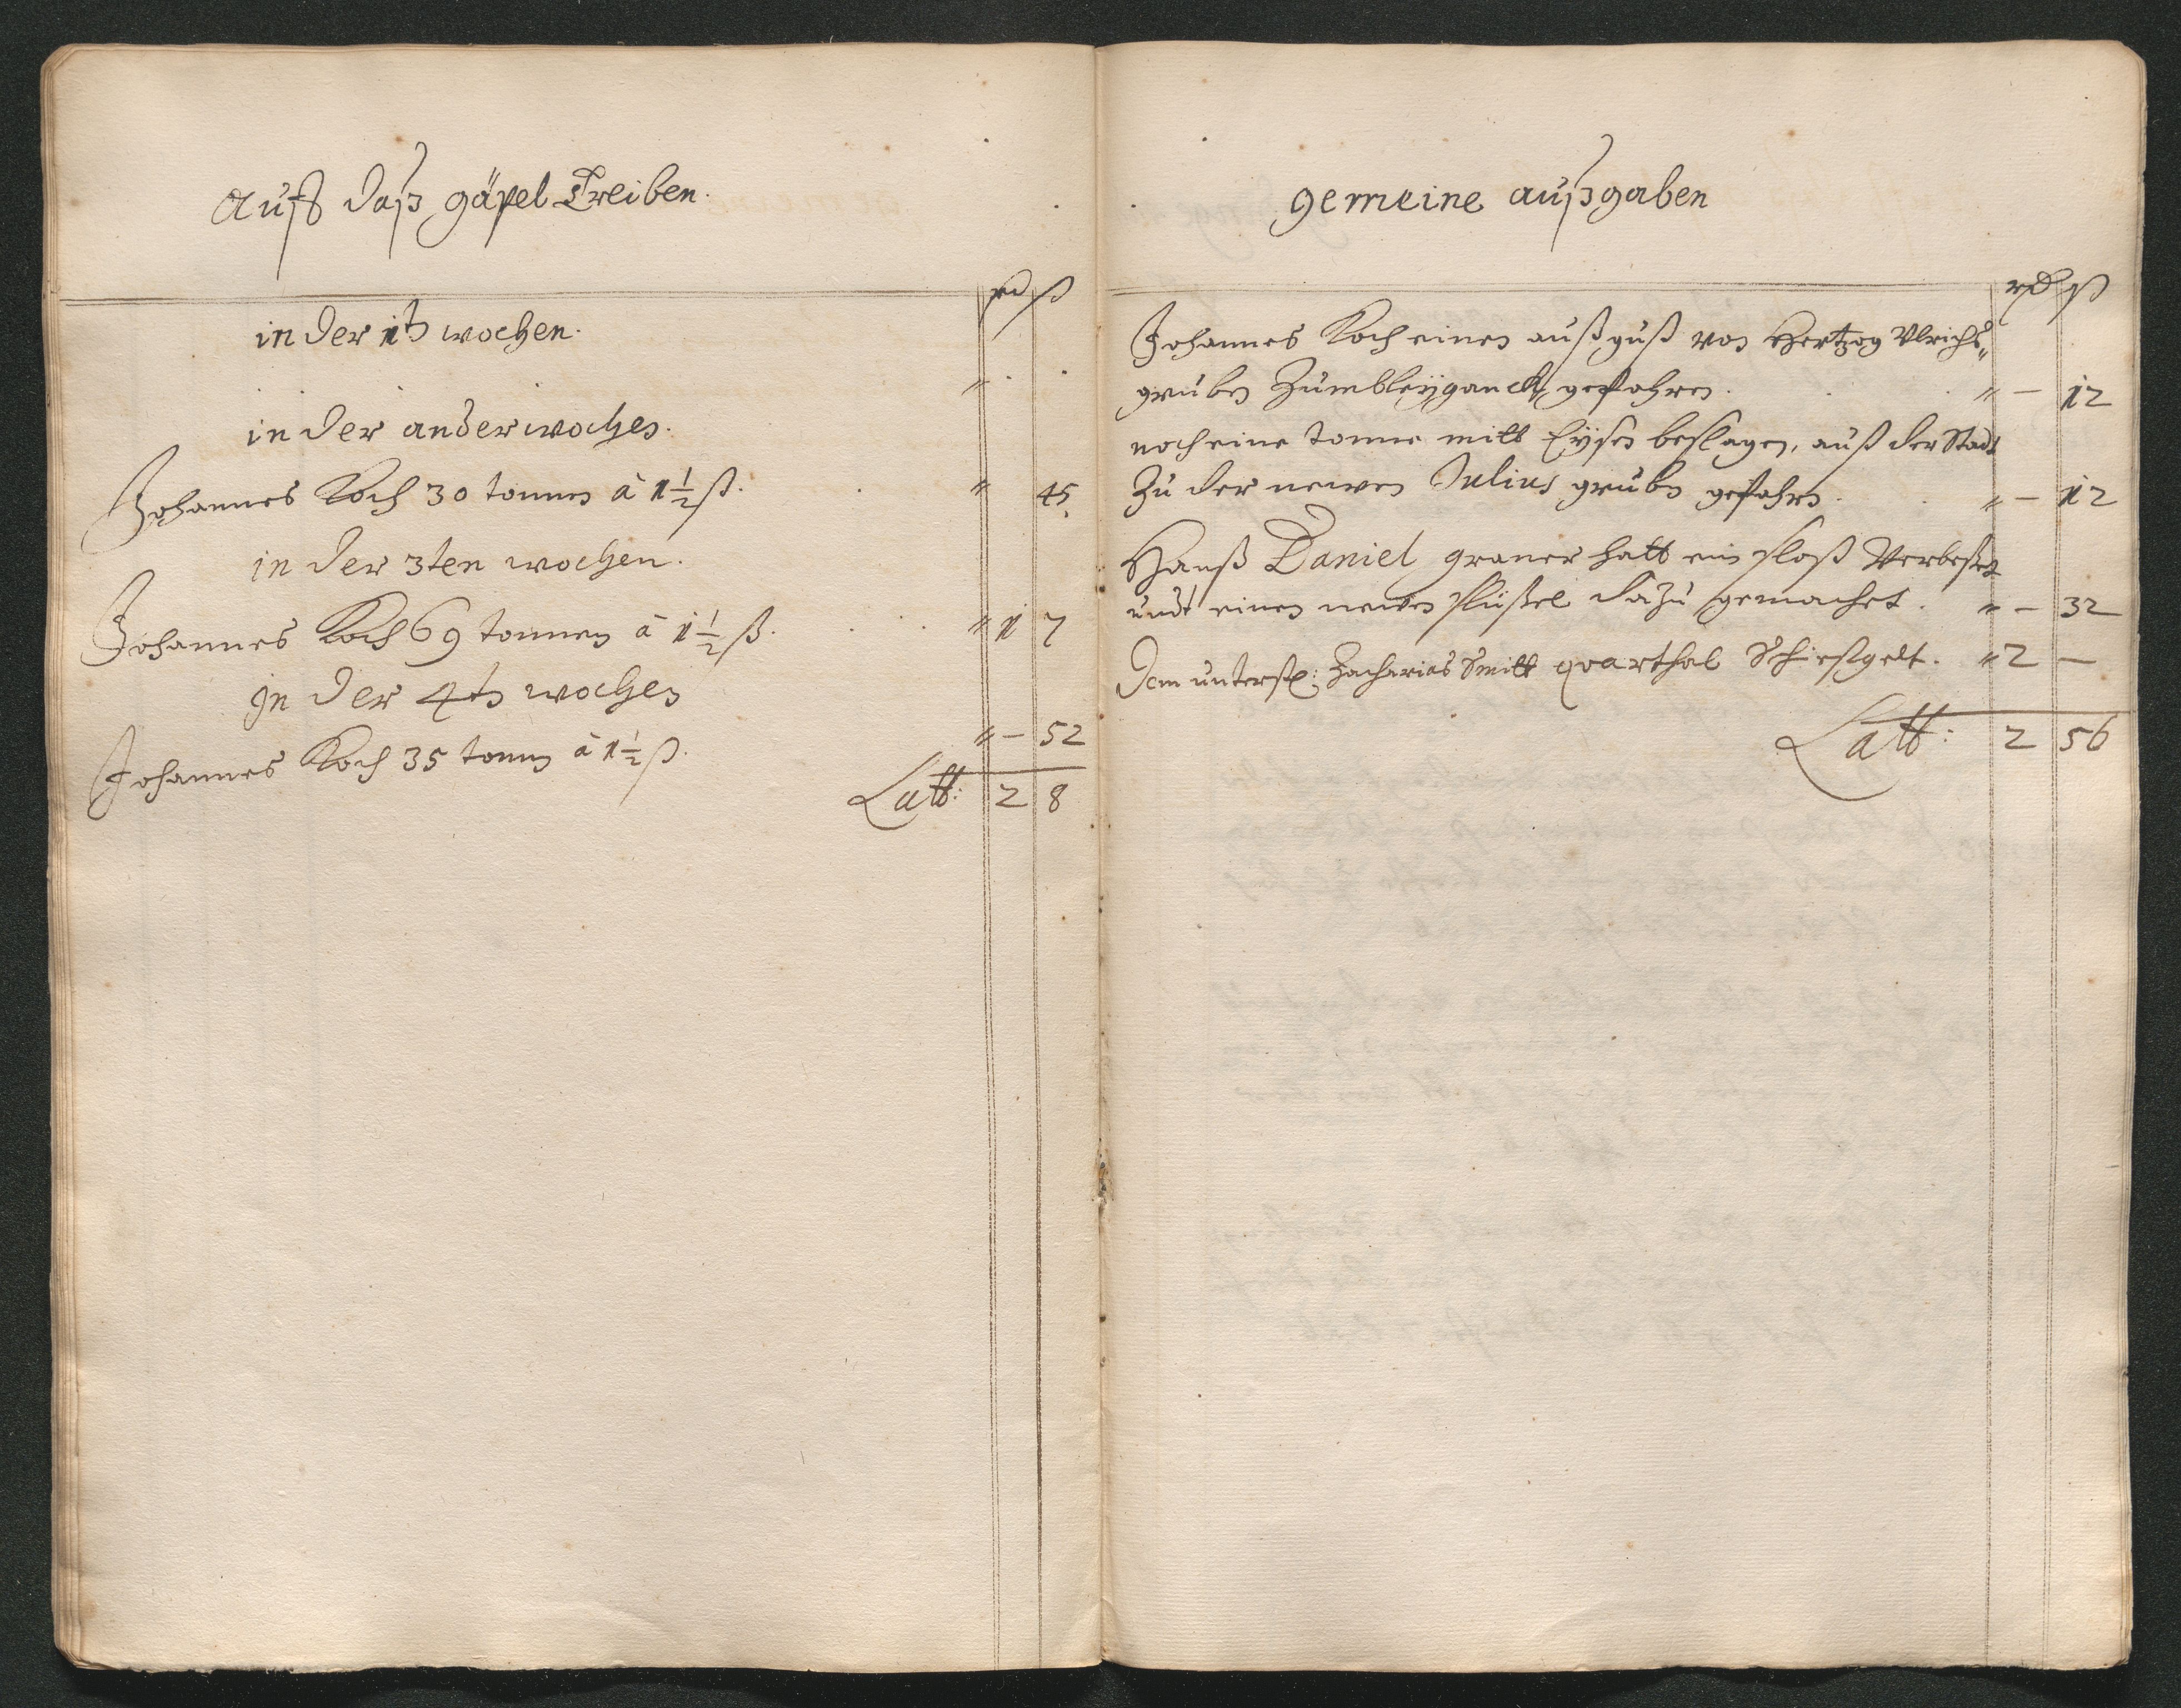 Auff daß gäpel Treiben.
rd ß
in der 1t wochen.
"
in der ander wochen.
Johannes Koch 30 tonnen â 1 1/2 ß. " 45
in der 3ten wochen.
Johannes Koch 69 tonnen â 1 1/2 ß. " 1 7
in der 4t wochen
Johannes Koch 35 tonnen â 1 1/2 ß. " – 52
Latt: 2 8
gemeine außgaben
rd ß
Johannes Koch einen außguß von Hertzog Ulrichs
gruben zum bleÿganck gefahren. " – 12
noch eine tonne mitt Eÿsen beslagen, auß der Stadt
zu der newen Julius gruben gefahren. " – 12
Hanß Daniel graner hatt ein sloß verbeßert
undt einen newen slüßel dazu gemachet. " – 32
Dem unterst: Zacharias Smitt quarthal Schießgelt. " 2 –
Latt: 2 56